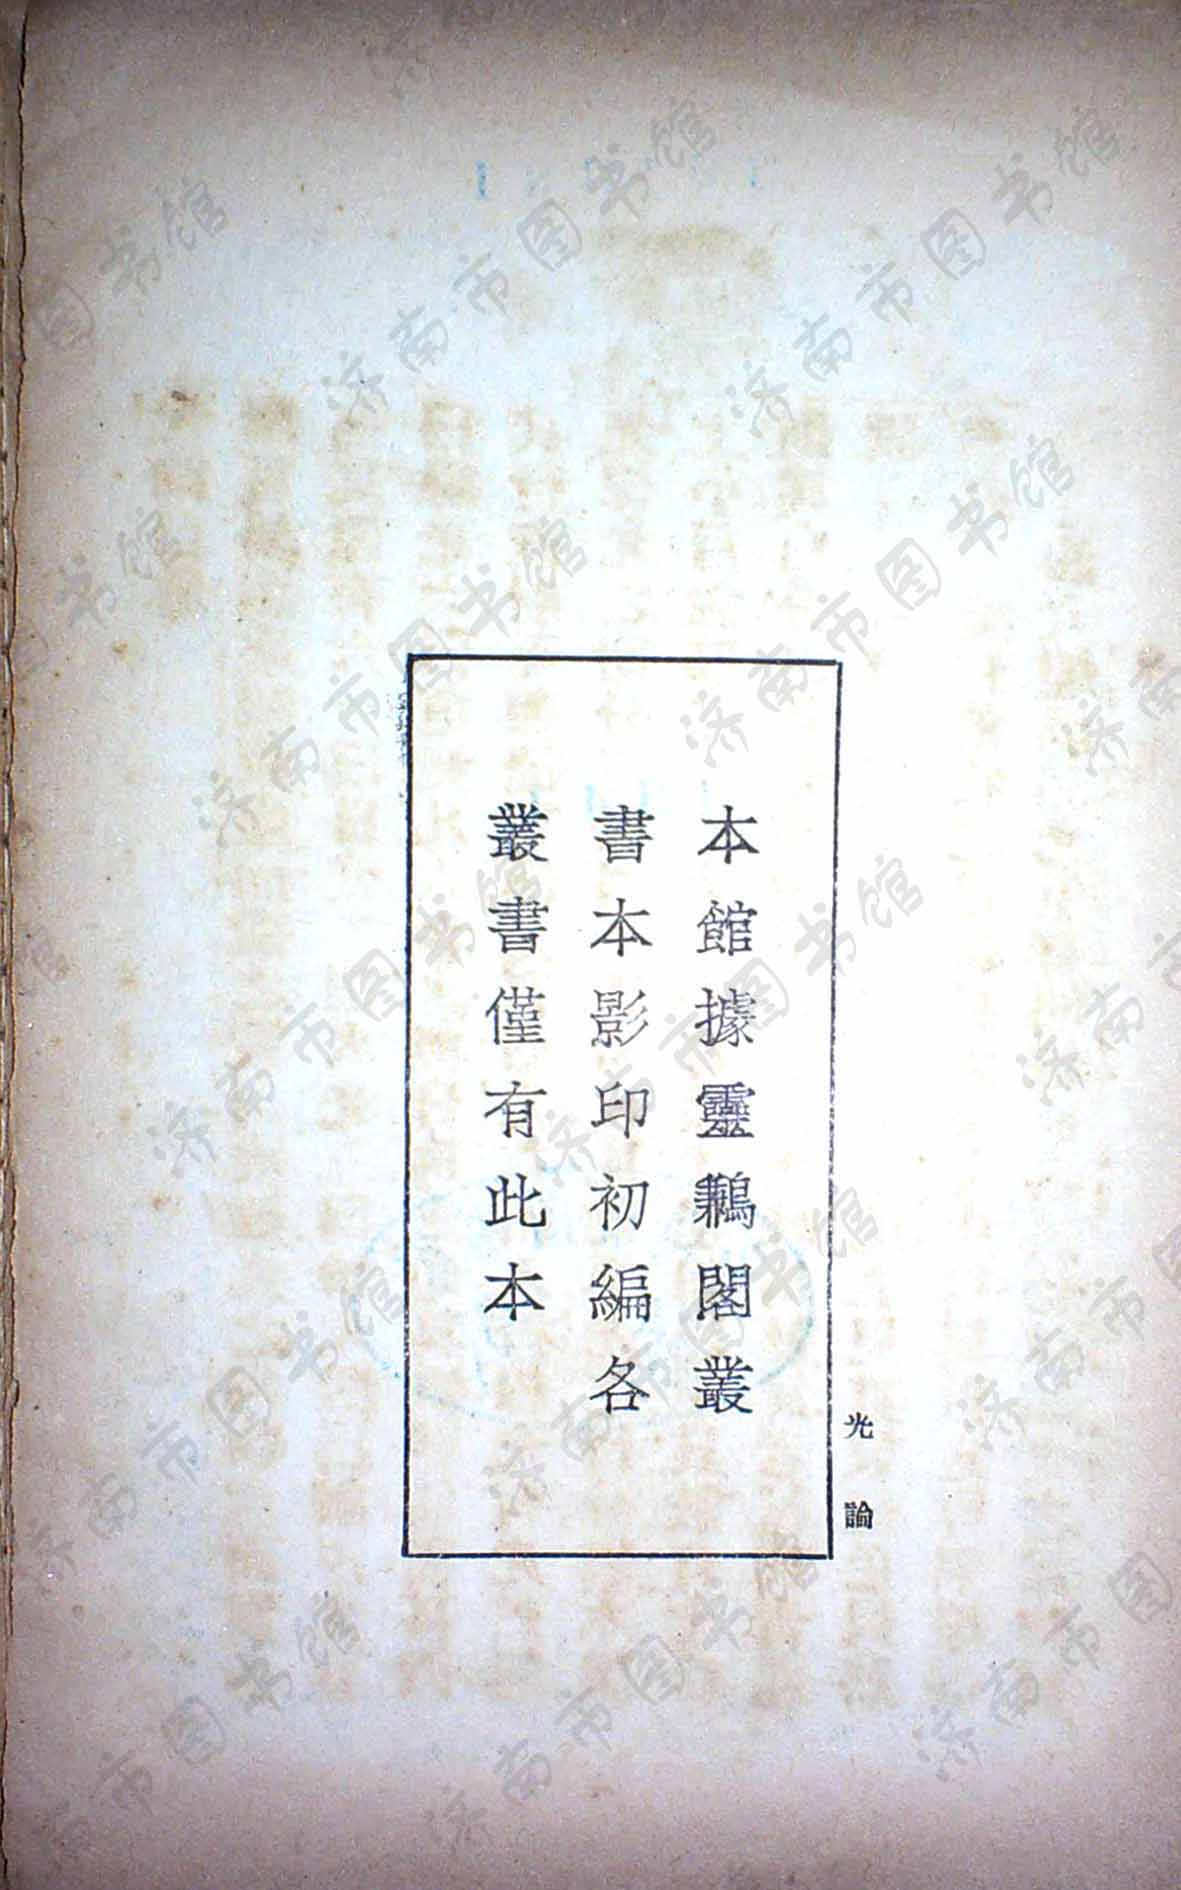 本館據靈鶼閣叢
書本影印初編各
叢書僅有此本
光論
济南市图书馆